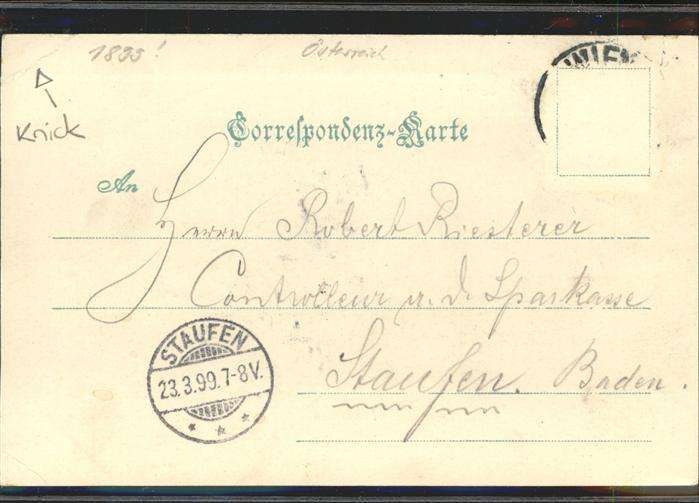 1899!
Österreich
WIEN
Knick
Correspondenz-Karte
An
Herrn Robert Riesterer
Controlleur a. d. Sparkasse
Staufen. Baden.
STAUFEN
23.3.99.7-8V.